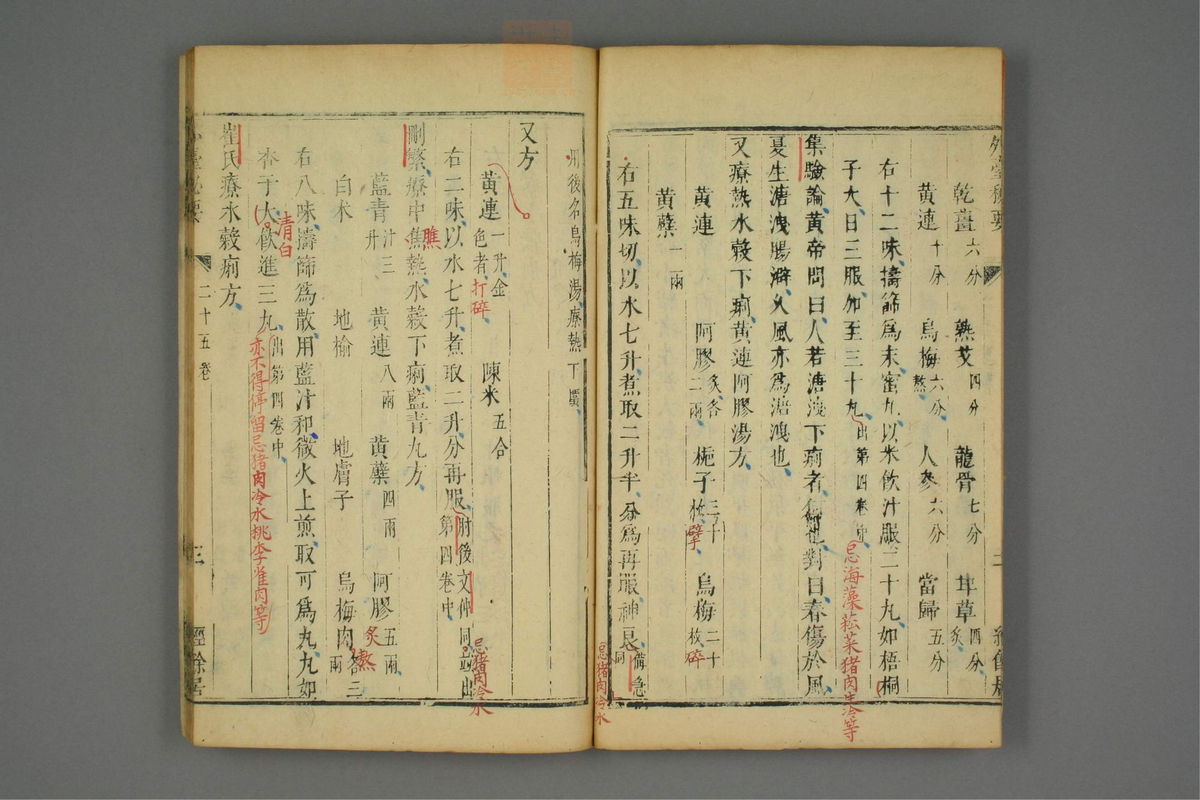 外臺秘要
乾薑六分 熟艾四分 龍骨七分 草四分炙
黃連十分 烏梅六分熬 人參六分 當歸五分
右十二味擣篩爲末蜜丸以米飲汁服二十丸如梧桐
子大日三服加至三十丸出第四卷中 忌海藻菘菜猪肉生冷等
集驗論黃帝問曰人若溏洩下痢者何也對曰春傷於風
夏生溏洩腸澼久風亦爲溏洩也
又療熱水穀下痢黃連阿膠湯方
黃連 阿膠炙各二兩 梔子三十枚擘 烏梅二十枚碎
黃蘗一兩
右五味切以水七升煮取二升半分爲再服神良備急同 忌猪肉冷水
肘後名烏梅湯療熱下
又方
黃連一升金色者打碎 陳米五合
右二味以水七升煮取二升分再服肘後文仲同並出第四卷中 忌猪肉冷水
刪繁療中焦熱水穀下痢藍青丸方
膲
藍青汁三升 黃連八兩 黃蘗四兩 阿膠五兩炙
白朮 地榆 地膚子 烏梅肉各三兩熬
右八味擣篩爲散用藍汁和微火上煎取可爲丸丸如
杏子大飲進三丸出第四卷中 亦不得停留忌猪肉冷水桃李雀肉等
清白
崔氏療水穀痢方
二十五卷
三
經餘居